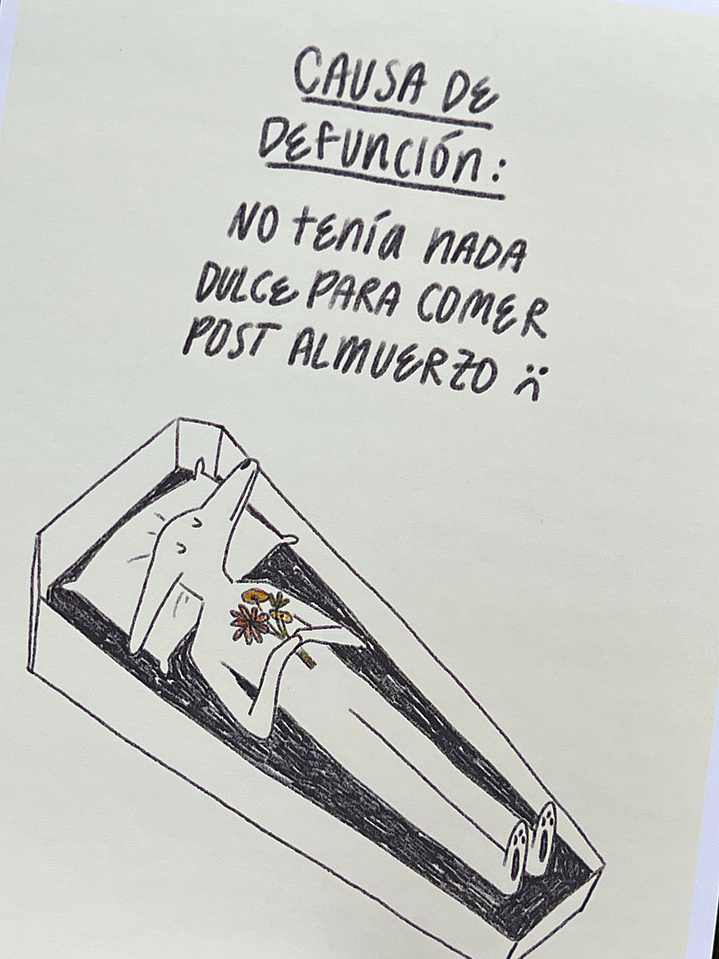 CAUSA DE
DEFUNCIÓN:
NO TENÍA NADA
DULCE PARA COMER
POST ALMUERZO :(